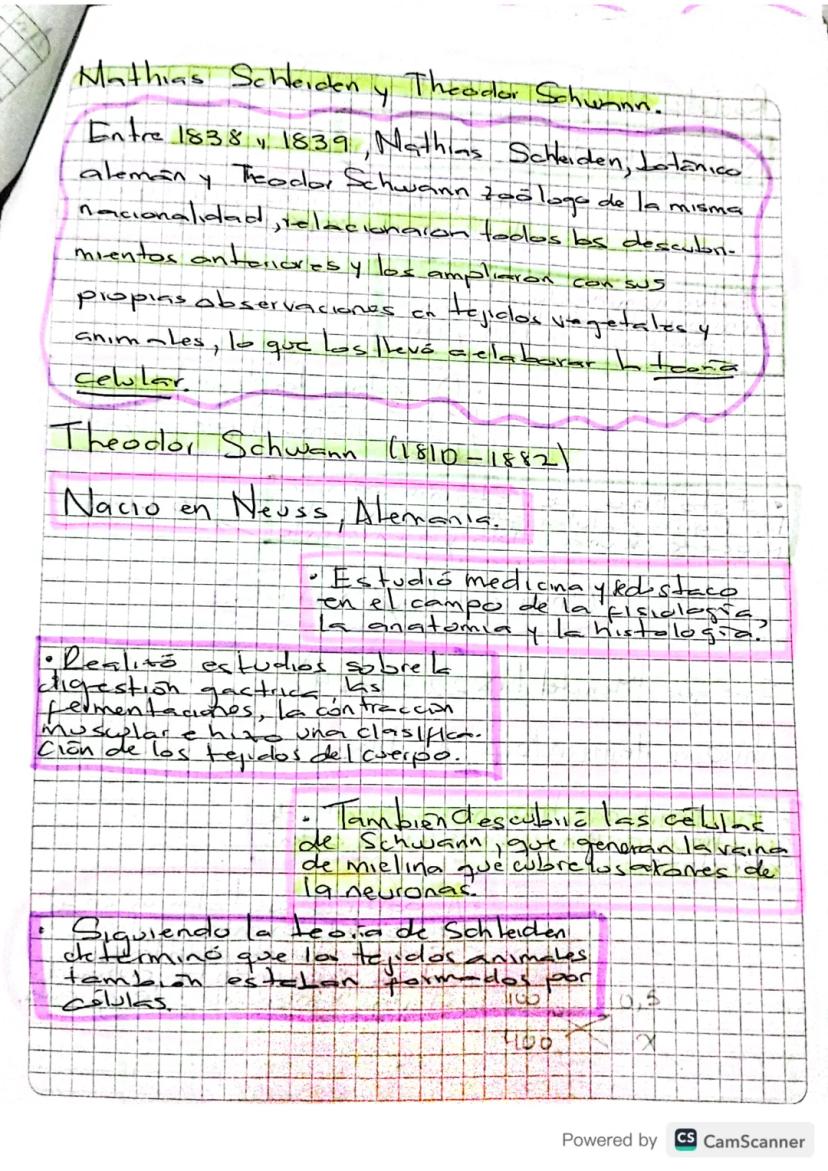 Mathias Schleiden y Theodor Schwann.
Entre 1838 y 1839, Mathias Schleiden, botánico
alemán y Theodor Schwann zoólogo de la misma
nacionalidad, relacionaron todos los descubri-
mientos anteriores y los ampliaron con sus
propias observaciones en tejidos vegetales y
animales, lo que los llevó a elaborar la teoría
celular.
Theodor Schwann (1810-1882)
Nacio en Neuss, Alemania.
• Estudió medicina y
en el campo de la fisiología,
la anatomia y la histología.
• Realizó estudios sobre la
digestión gactrica, las
fermentaciones, la contracción
muscular e hizo una clasifica-
ción de los tejidos del cuerpo.
• También descubrió las células
de Schwann, que generan la vaina
de mielina que cubre los axones de
la neuronas.
• Siguiendo la teoría de Schleiden
determinó que los tejidos animales
también estaban formados por
células.
100 0,5
400 x
Powered by CS CamScanner